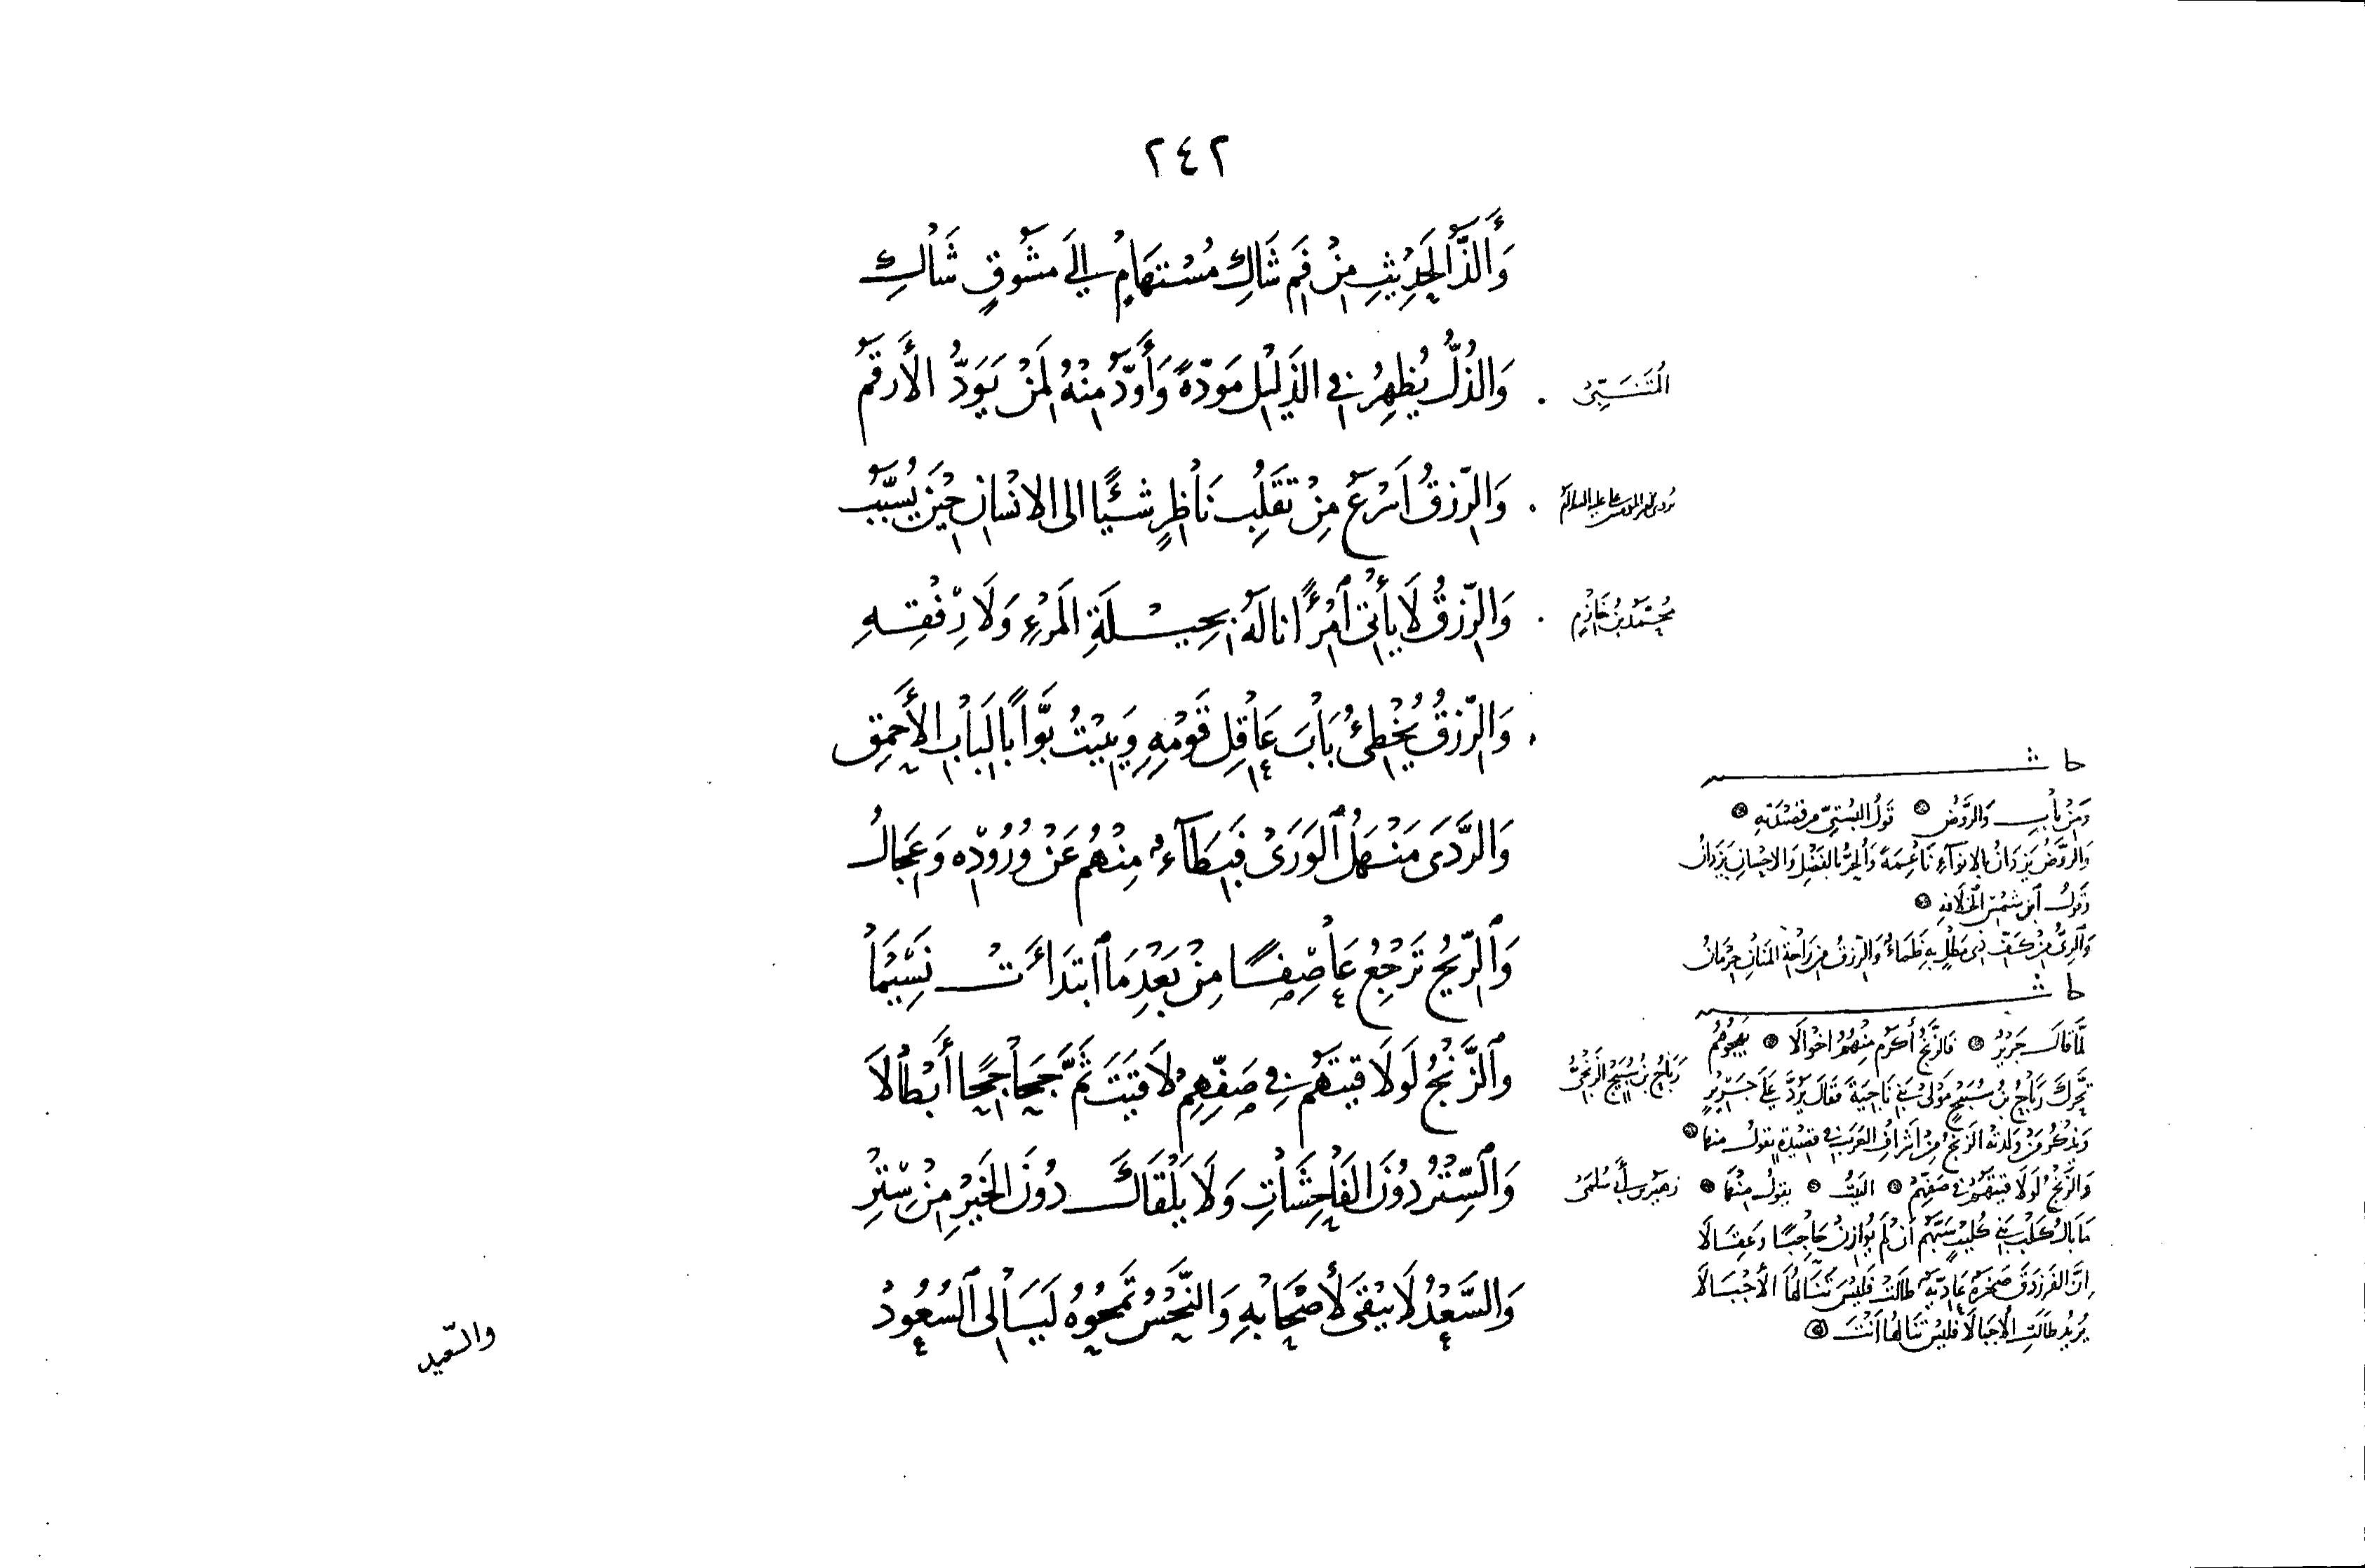 ٢٤٢
وَأَلَذُّ الْحَدِيْثِ مِنْ فَمِ شَاكٍ مُسْتَهَامٍ إلَى مَشُوْقٍ شَاكِ
المُتَنَبِّي . وَالذُّلُّ يُظهِرُ في الذَلِيْلِ مَودّةً وَأَوَدُّ مِنْهُ لِمَنْ يَوَدُّ الأَرقَمُ
. وَالرّزقُ أَسْرَعُ مِنْ تَقَلُّبِ نَاظِرٍ شَيْئًا الى الانْسَانِ حِيْنَ يُسَبَّبُ
مُحَمَّدُ بنُ حَازِمٍ . وَالرّزقُ لَا يَأتي أمْرًا نالَهُ بحِيْلَةِ المَرْءِ وَلَا رِفْقِهِ
. وَالرّزقُ يُخْطِئُ بَابَ عَاقِلِ قَوْمِهِ وَيَبيْتُ بَوَّاباً لِبَابِ الأَحمَقِ
وَالرَّدَى مَنْهَلُ الوَرَىْ فَبِطَآءٌ مِنْهُم عَنْ وُرُوْدِه وَعِجَالُ
وَالرّيْحُ تَرْجِعُ عَاصِفًا مِنْ بَعْدِ مَا ابتَدَأَتْ نَسِيْمَا
رَبَاحُ بنُ سُبَيْحٍ الزّنجيُّ وَالزَّنْجُ لَو لَاقيتَهُم في صَفِّهِم لَاقيَتَ ثَمَّ جَحَاجِحًا أَبْطَالَا
زهَير بن أبي سُلمَى وَالسِّتْرُ دُوْنَ الفَاحِشَاتِ وَلَا يَلْقَاكَ دُوْنَ الخَيْرِ مِنْ سِتْرِ
وَالسَّعْدُ لَا يَبْقَى لأَصْحَابِهِ وَالنَّحْسُ تَمحُوْهُ لَيَالى السُعُوْدْ
والسّعيد
حاشـ
وَمِنْ بابِ وَالرَّوْضُ قَوْلُ البُستِيّ مِنْ قَصِيْدَتِهِ
وَالرَّوْضُ يَزدَانُ بالانوَآءِ نَاعِمَةً وَالحُرُّ بالفَضْلِ وَالاحْسَانِ يَزدَانُ
وَقَولُ ابن شَمْسِ الخِلَافَةِ
حاشـ
لَمَّا قَالَ جَرِيْرٌ فَالزَّنْجُ أَكرَمُ مِنْهُمُ اخوَالَا يَهجُوهُم
تَحَرّكَ رَبَاحُ بنُ سُبَيْحٍ مَوْلىَ بَنِي نَاجِيَةَ فَقَالَ يَرُدُّ عَلَى جَرِيْرٍ
وَيَذكُرُ مَنْ وَلَدَتهُ الزَنجُ مِنْ اَشرَافِ العَرَبِ في قَصِيْدَةٍ يَقولُ منها
وَالزَّنْجُ لَو لَاقَيتَهُم في صَفِّهِمُ البَيتُ يقولُ مِنْهَا
مَا بَالُ كَلْبِ بَنِي كُلَيْبٍ سَبَّهُم اَن لَم يُوَازِنْ حَاجِبًا وَعِقَالَا
اِنَّ الفَرَزدَقَ صَخرَةٌ عَادِيّةٌ طَالَتْ فَلَيْسَ تَنَالُهَا الأَجْبَالَا
يُرِيْدُ طَالَتِ الأَجبَالَا فَلَيْسَ تَنَالُهَا اَنْتَ